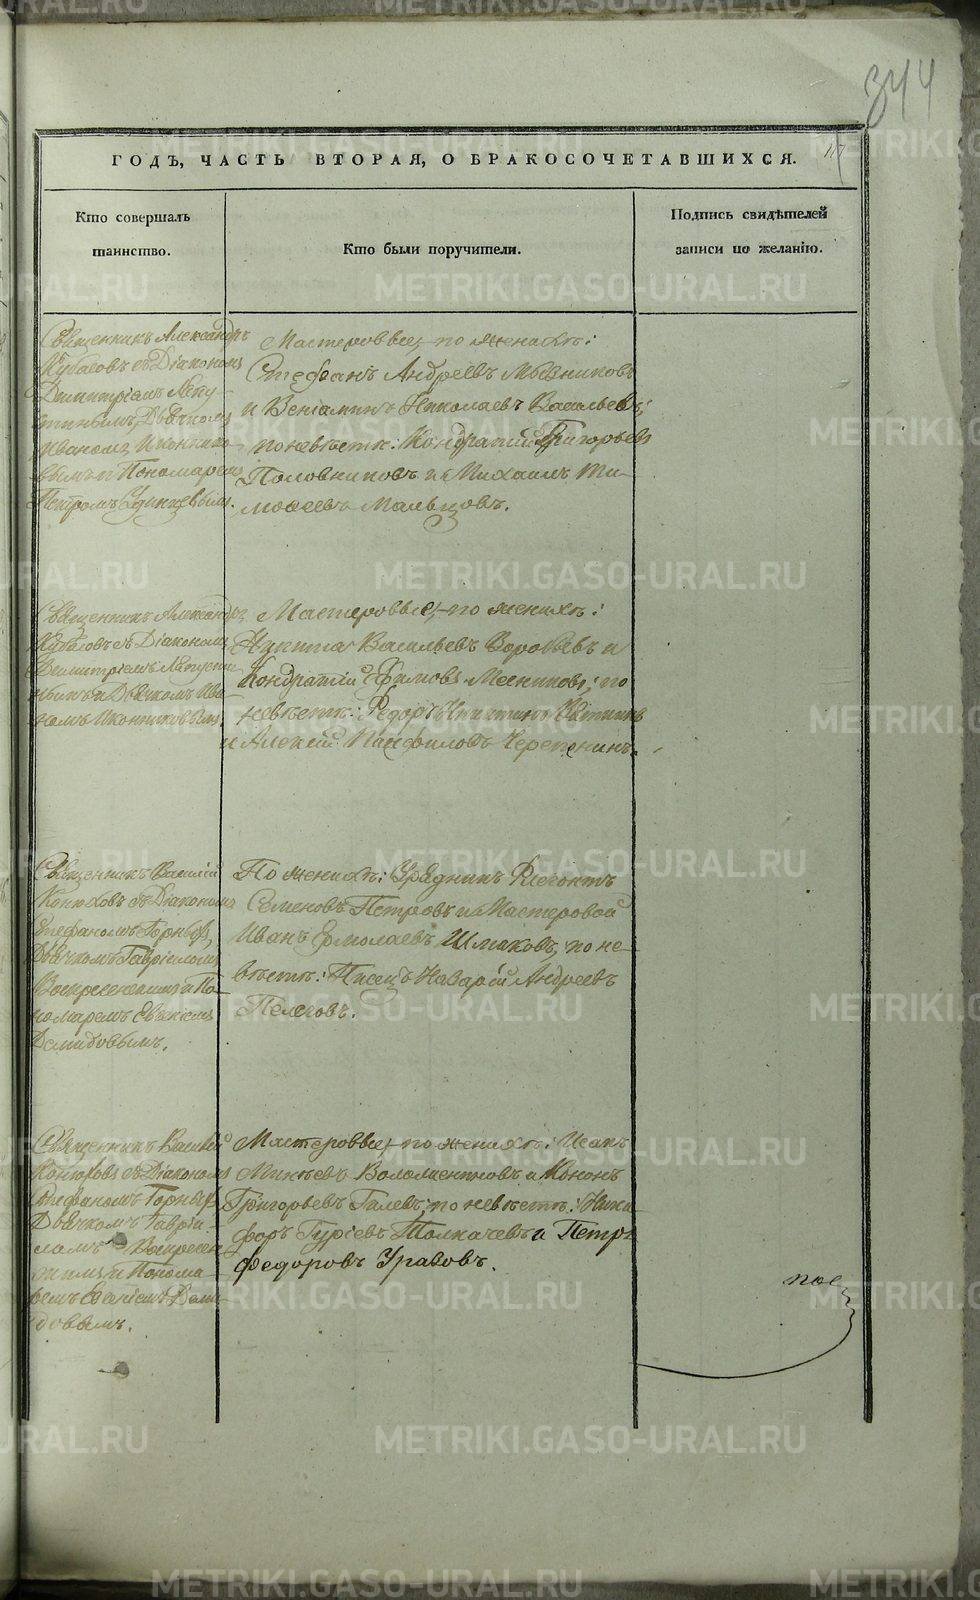 344
ГОДЪ, ЧАСТЬ ВТОРАЯ, О БРАКОСОЧЕТАВШИХСЯ.
117
Кто совершалъ
таинство.
Кто были поручители.
Подпись свидѣтелей
записи по желанію.
Священникъ Александръ
Кубасовъ съ Діакономъ
Димитріемъ Лепу-
стинымъ, Дьячкомъ
Иваномъ Иконнико-
вымъ и Пономаремъ
Петромъ
Мастеровые, по женихѣ:
Стефанъ Андреевъ
и Веніаминъ Николаевъ Васильевъ;
по невѣстѣ: Кондратій Григорьевъ
Половниковъ и Михаилъ Ти-
моѳеевъ Мальцовъ.
Священникъ Александръ
Кубасовъ съ Діакономъ
Димитріемъ Лепусти-
нымъ и Дьячкомъ Ива-
номъ Иконниковымъ.
Мастеровые, по женихѣ:
Никита Васильевъ Воробьевъ и
Кондратій Ефимовъ Месниковъ; по
невѣстѣ: Ѳедоръ Никитинъ
и Алексій Панфиловъ Черепенинъ.
Священникъ Василій
Конюховъ съ Діакономъ
Стефаномъ Горныхъ,
Дьячкомъ Гавріиломъ
Воскресенскимъ и По-
номаремъ Евгеніемъ
Демидовымъ.
По женихѣ: Урядникъ Леонтъ
Семеновъ Петровъ и Мастеровой
Иванъ Ермолаевъ Шмаковъ, по не-
вѣстѣ: Писецъ Назарій Андреевъ
Пелеговъ.
Священникъ Василій
Конюховъ съ Діакономъ
Стефаномъ Горныхъ,
Дьячкомъ Гаврі-
ломъ Воскресен-
скимъ и Понома-
ремъ Евгеніемъ Деми-
довымъ.
Мастеровые, по женихѣ: Исакъ
Минѣевъ и Кононъ
Григорьевъ Галевъ; по невѣстѣ: Ника-
форъ Гуріевъ Толкачевъ и Петръ
Федоровъ Уразовъ.
METRIKI.GASO-URAL.RU